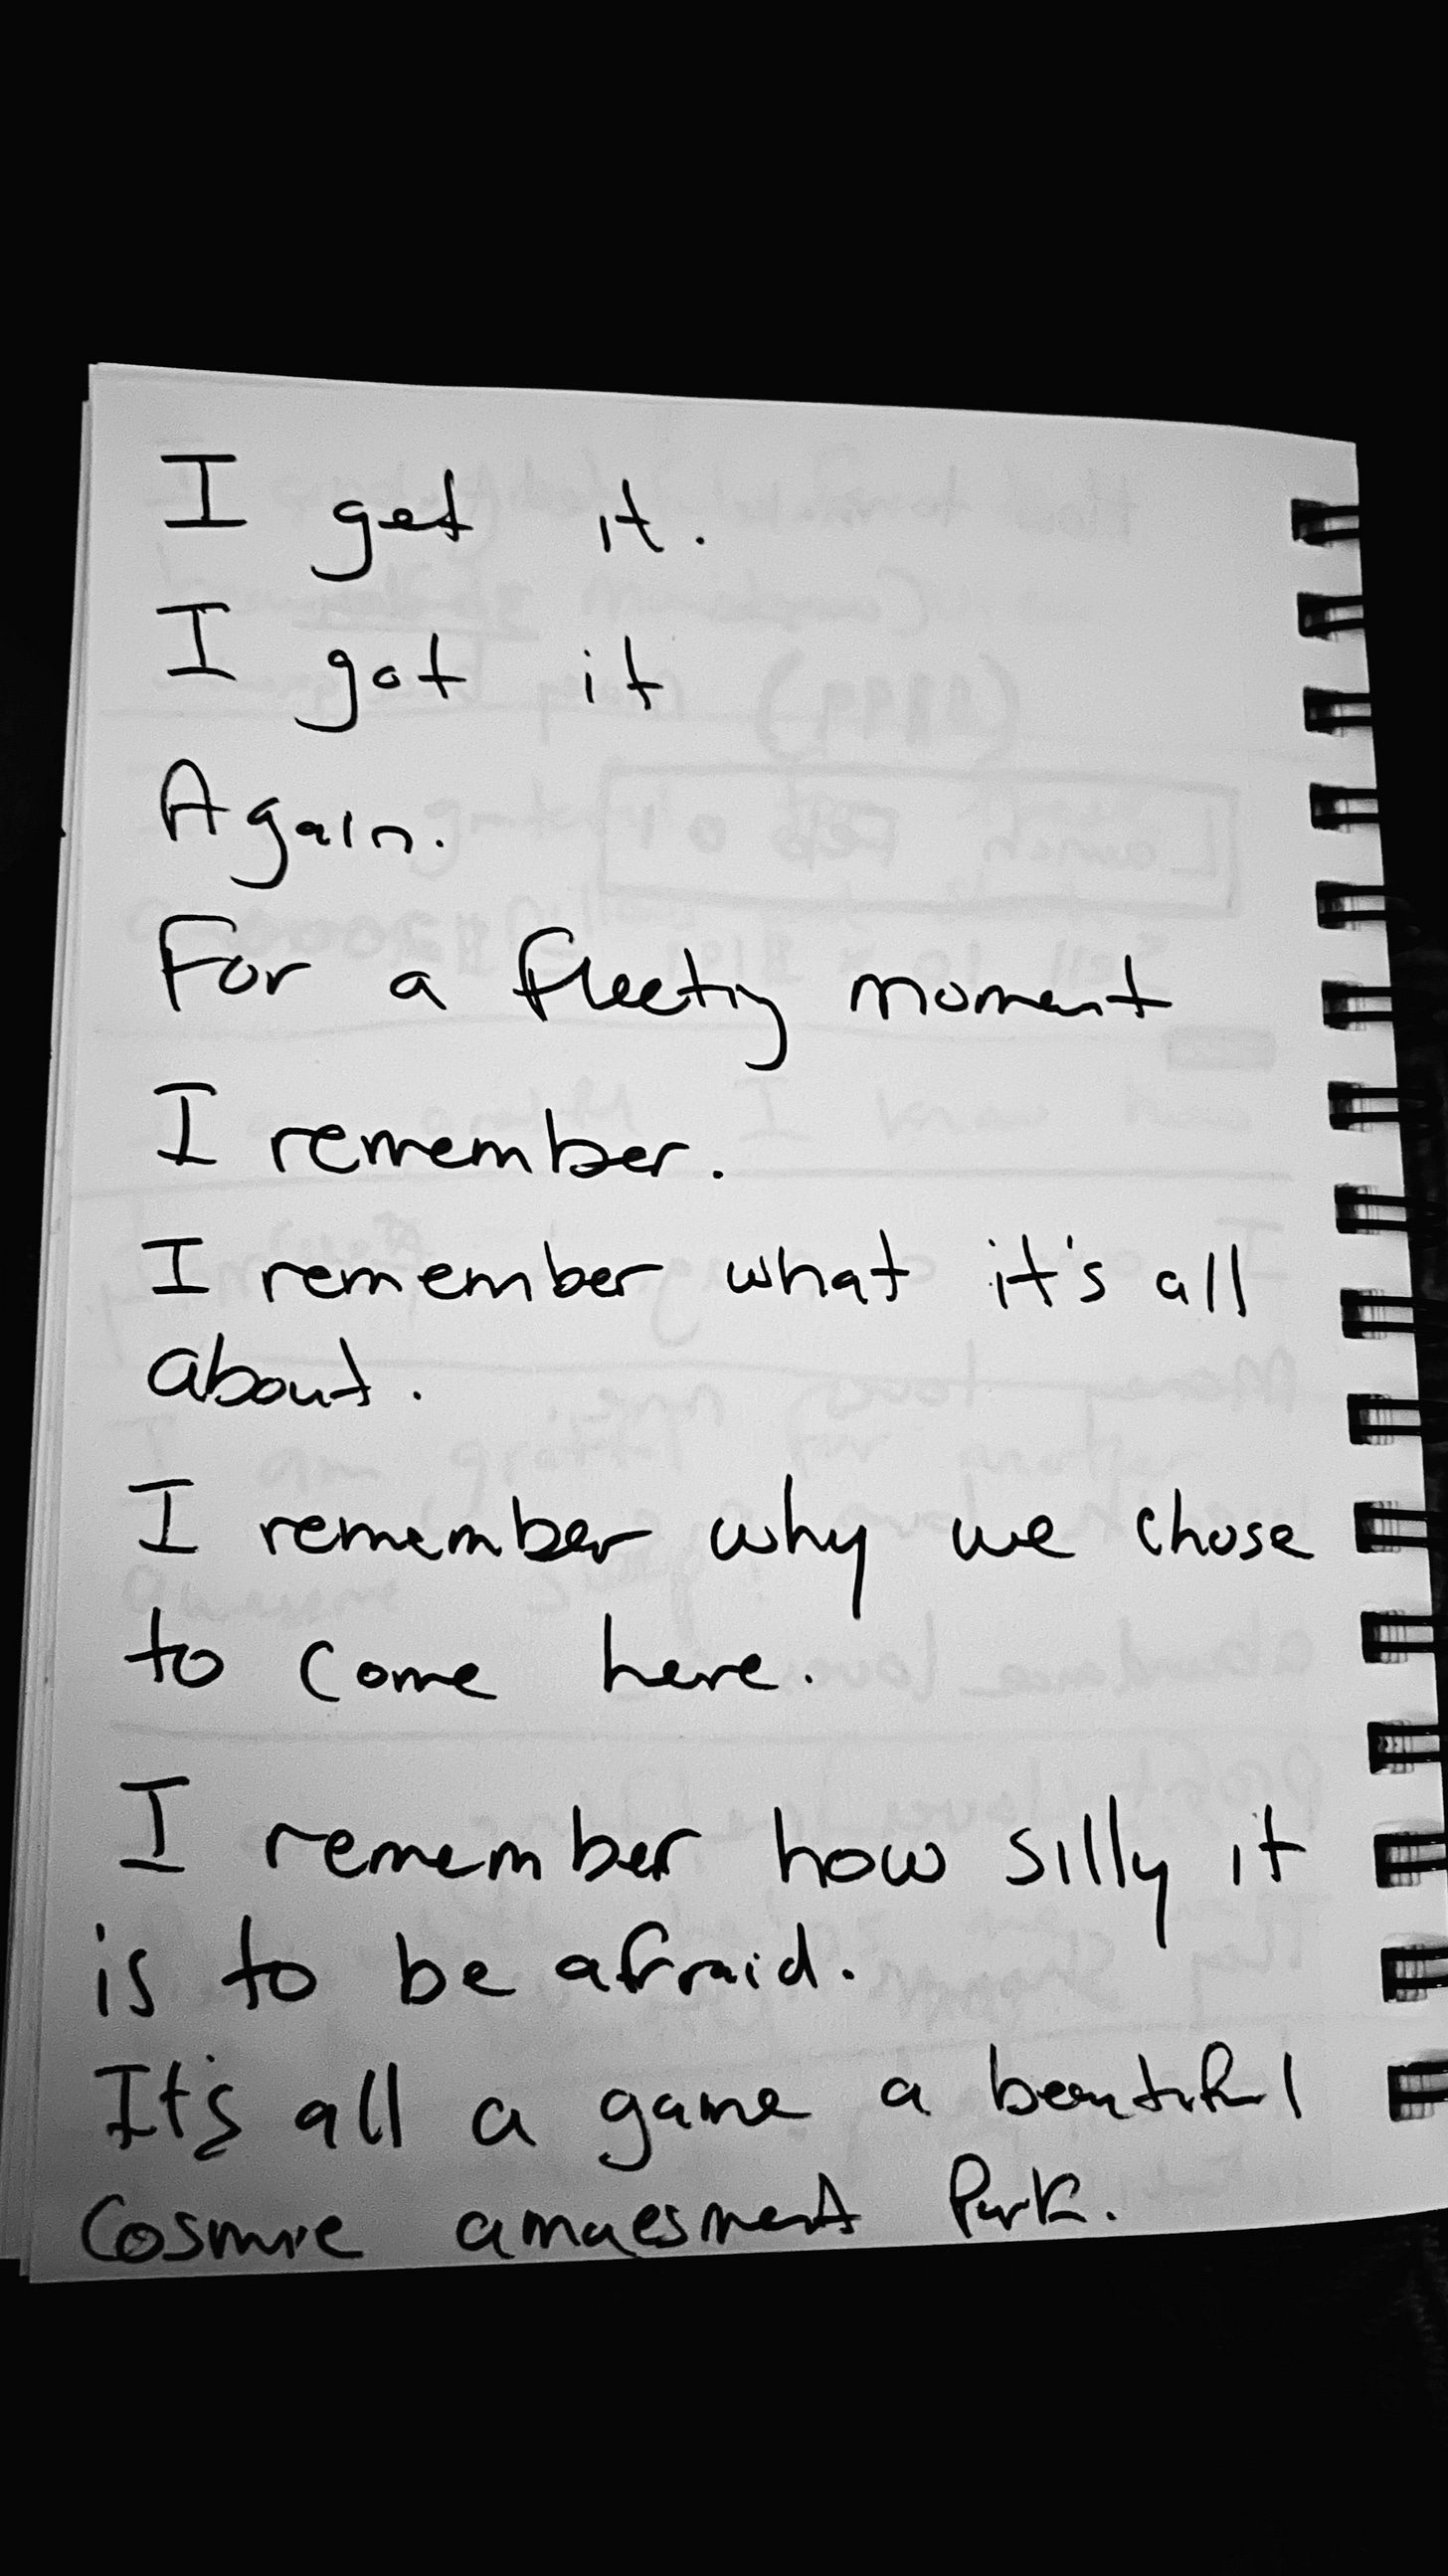 I get it.
I got it
Again.
For a fleeting moment
I remember.
I remember what it's all
about.
I remember why we chose
to come here.
I remember how silly it
is to be afraid.
It's all a game a beautiful
Cosmic amuesment Park.